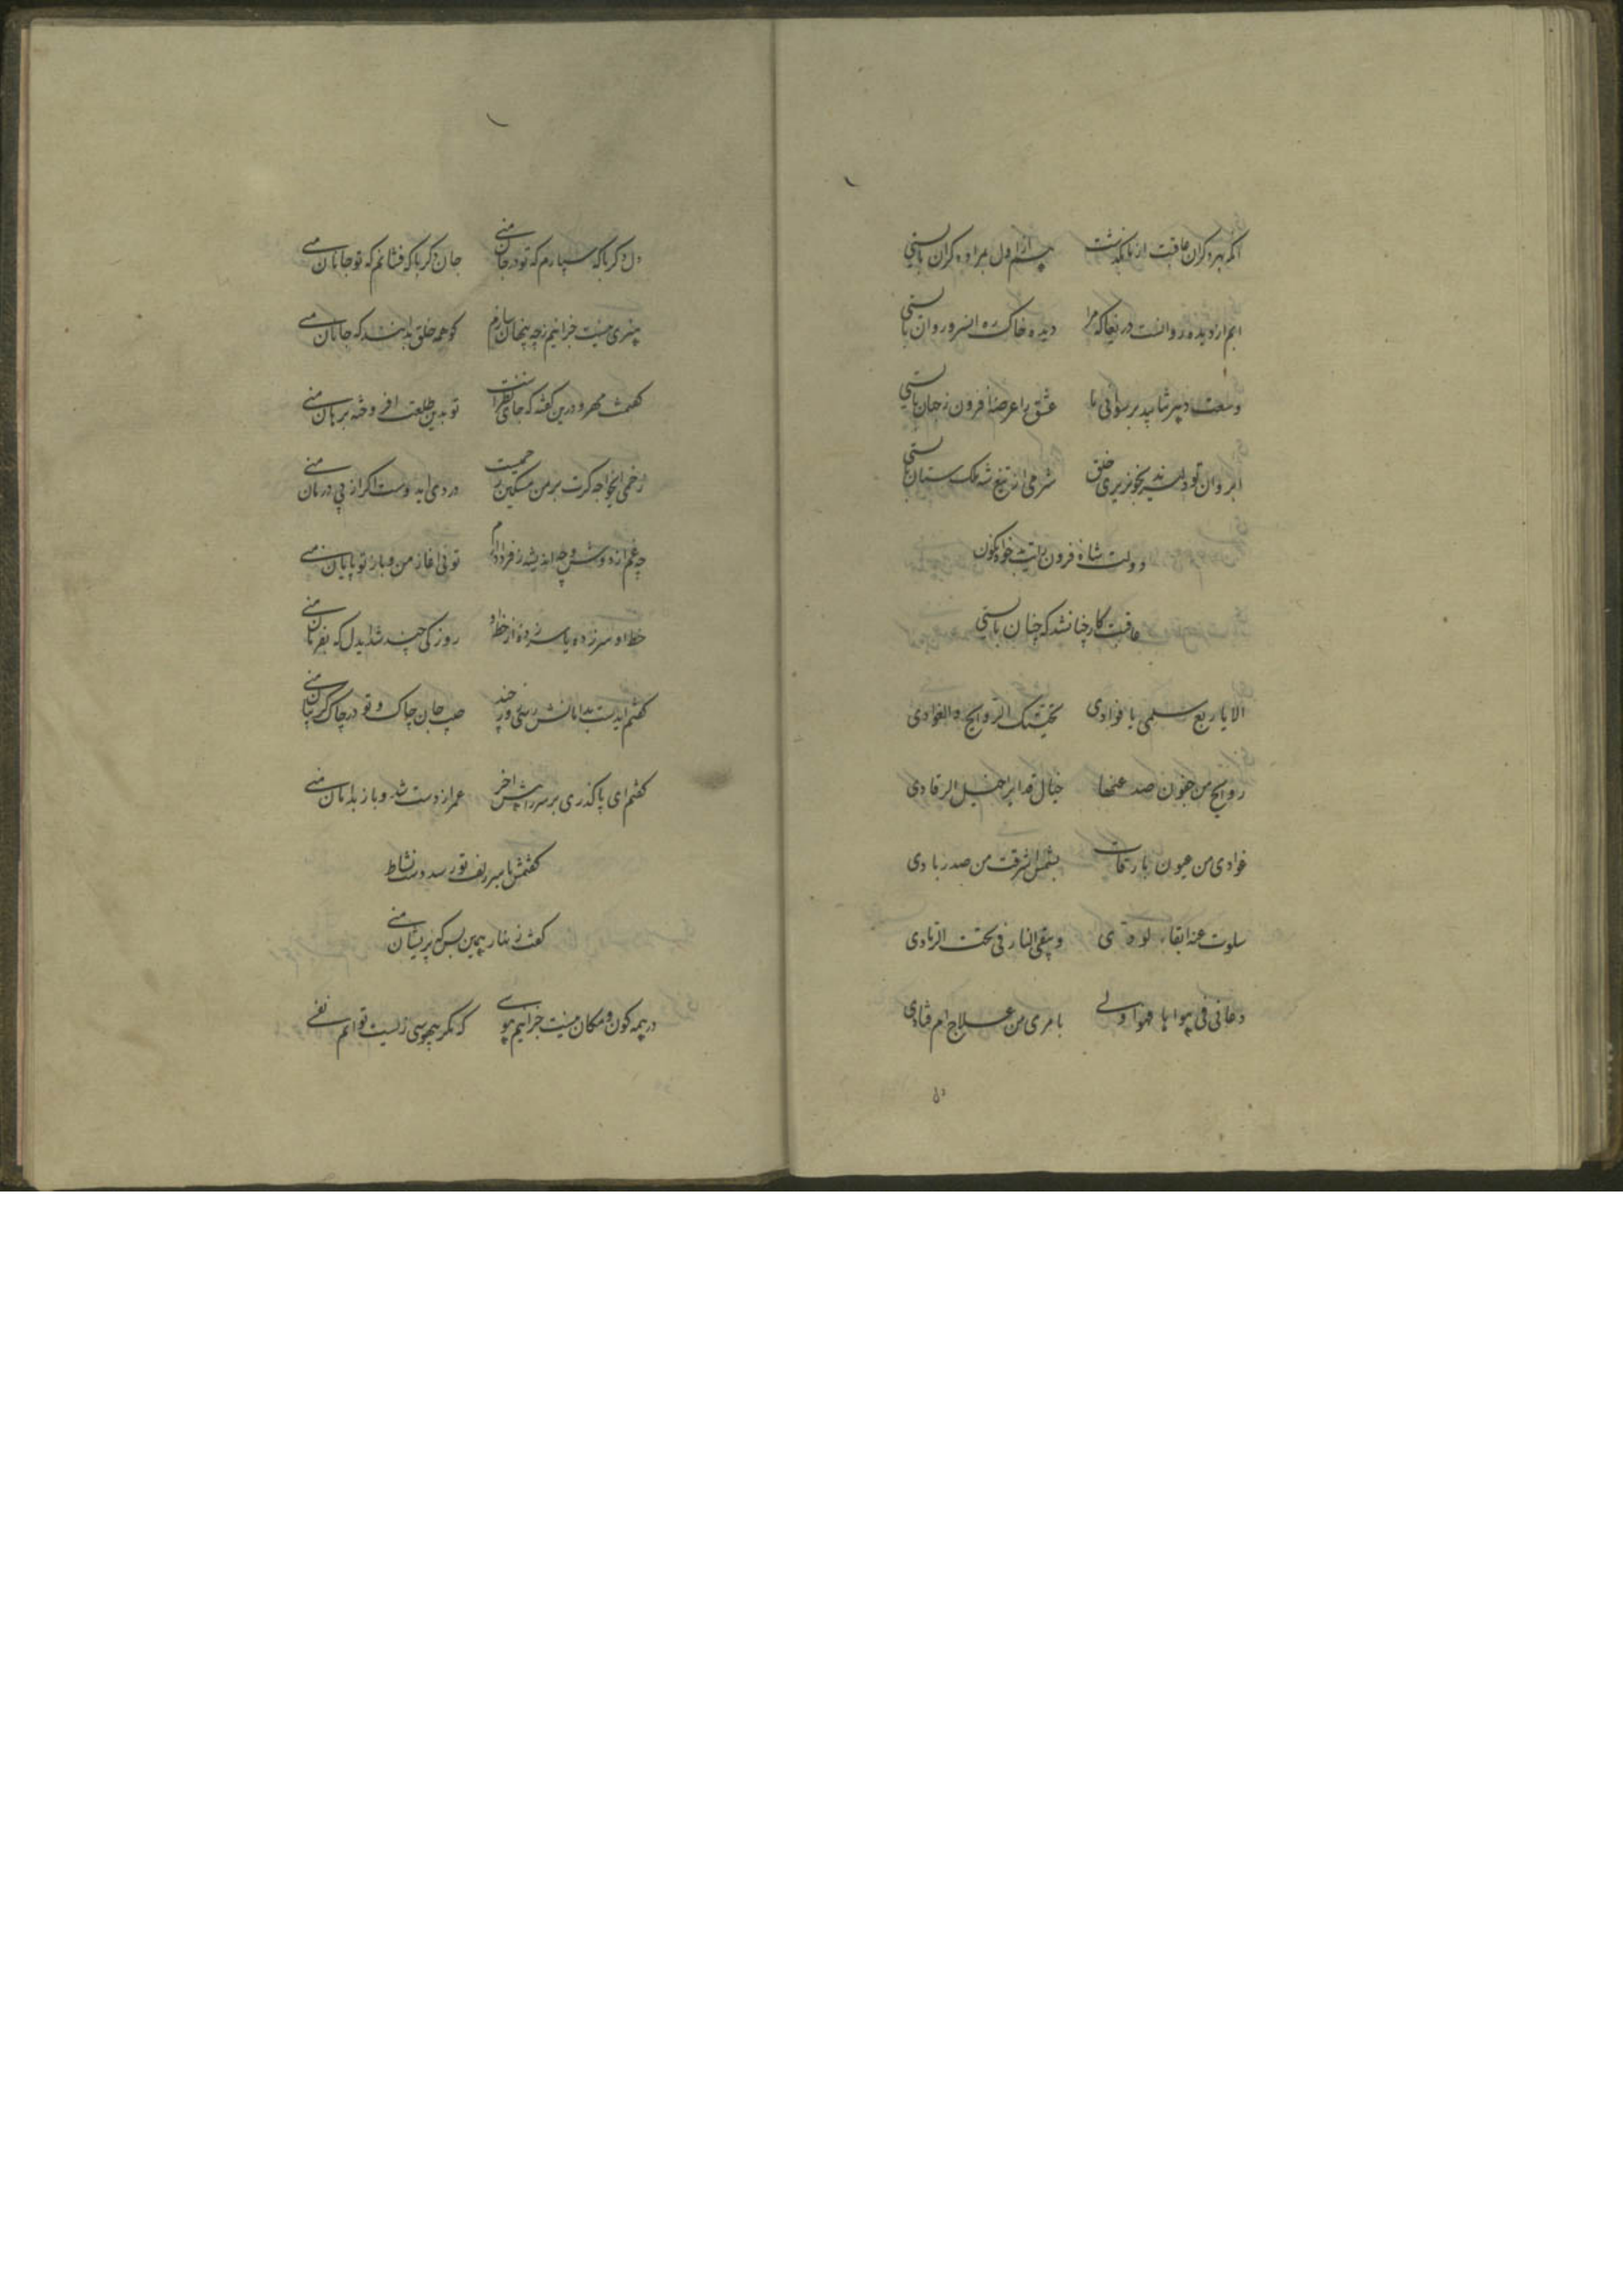 آنکه بهر دگران عاقبت از ما بگذشت چشمم از اول براه دگران بایستی
اینم از دیده روانست دریغا که مرا دیده خاک ره آن سرو روان بایستی
وسعت دهر نشاید برسوائی ما عشق را عرصه افزون ز جهان بایستی
ابروان تو دلیرند بخونریزی خلق شرمی از تیغ شه ملک ستان بایستی
دولت شاه فزون
عاقبت کار چنان شد که چنان بایستی
الا یا ریع سلمی یا فوادی تحیتک الروایح والغوادی
روایح من جفون صد عنها خیال قد ابی اخیل الرقادی
غوادی من عیون بارقات بشمس اشرقت من صدر بادی
سلوت عند ابقاء لودی ویبقی النار فی تحت الرمادی
دعانی فی هواها فهو اولی بامری من علاج ام فسادی
دل
دل دگر با که سپارم که تو در جان منی جان دگر با که فشانم که تو جانان منی
هنری نیست جز اینم ز چه پنهان دارم گو همه خلق بدانند که جانان منی
گفتمش مهر و درین گفته که جای نظر است تو بدین طلعت افروخته برهان منی
زخمی ایخواجه گرت بر من مسکین رحمیست دردی ایدوست اگر از پی درمان منی
چه غم از دوش و چه اندیشه ز فردا دارم توئی آغاز من و باز تو پایان منی
خط او سر زده یا سر زده از خط او روزکی چند شد ایدل که بفرمان منی
گفتم ایدست بدامانش رسی گفت جیب جان چاک و تو در چاک گریبان منی
گفتم ای پا گذری بر سر راهش آخر عمر از دست شد و باز بدامان منی
گفتمش با سر زلف تو رسد دست نشاط
گفت زنهار همین بس که پریشان منی
در همه کون و مکان نیست جز اینم هوسی که مگر بیهوسی زیست توانم نفسی